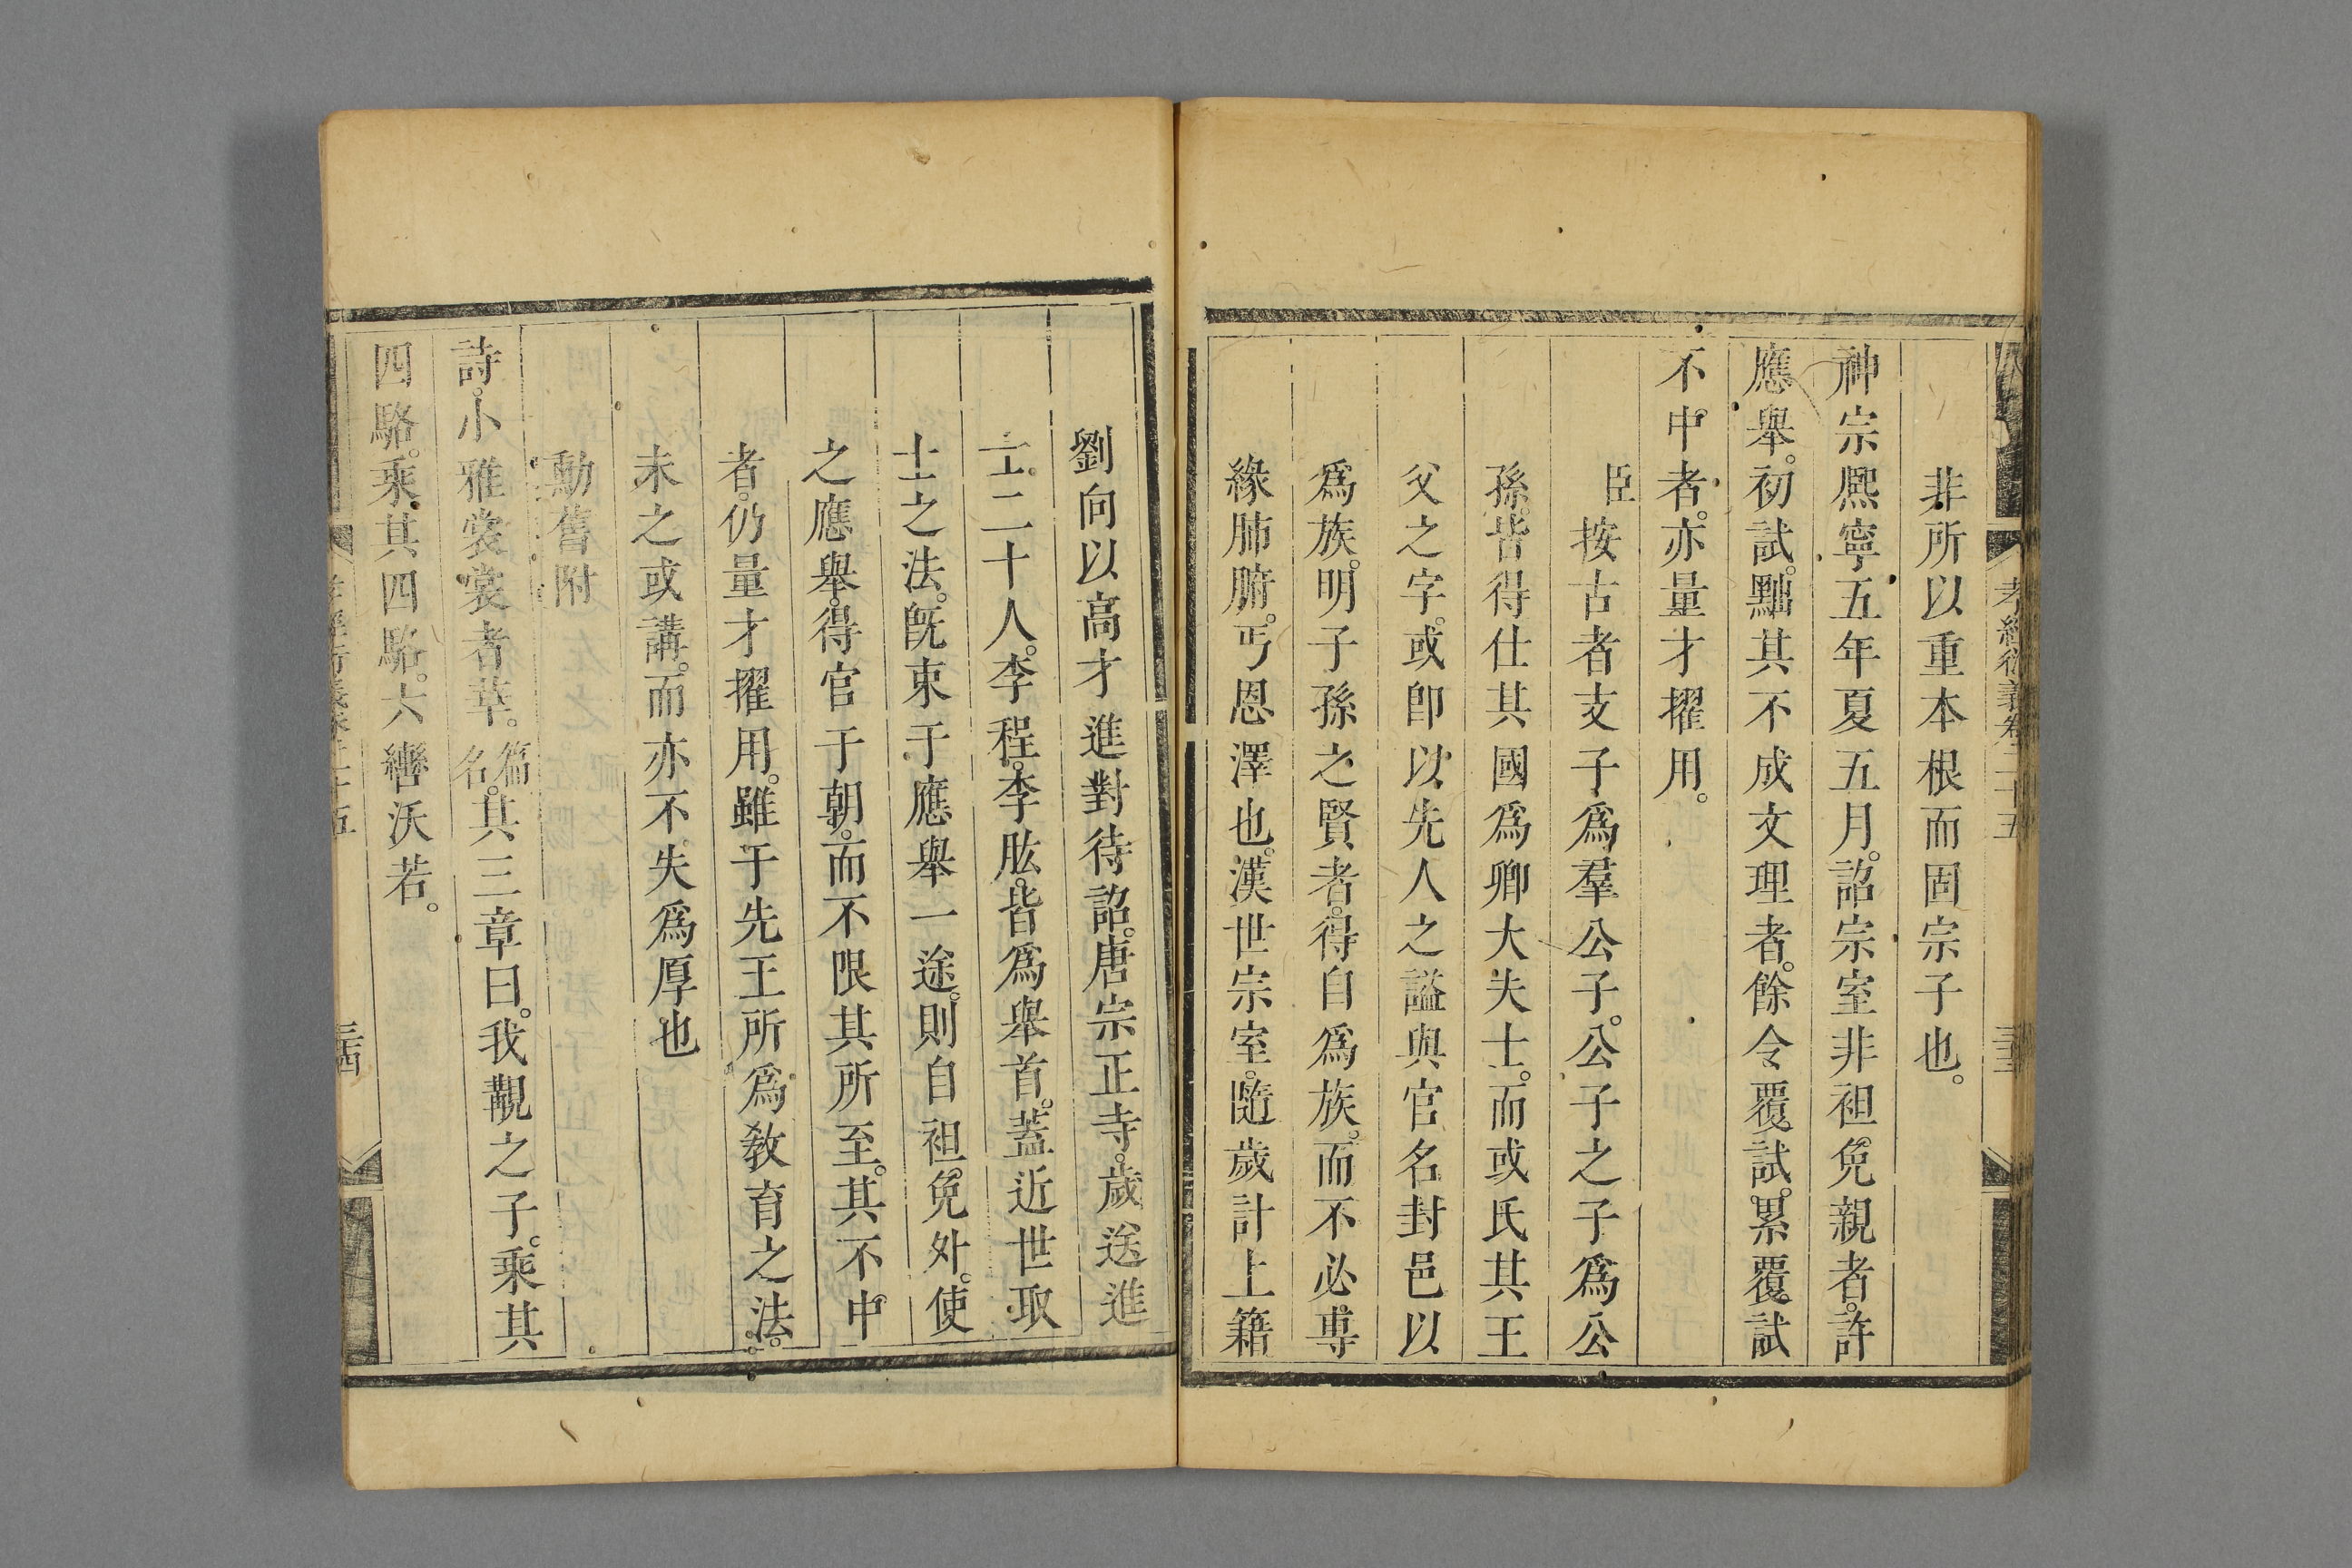 孝經衍義卷二十五
非所以重本根而固宗子也。
神宗熙寧五年夏五月。詔宗室非袒免親者。許
應舉。初試。黜其不成文理者。餘令覆試。累覆試
不中者。亦量才擢用。
臣按古者支子爲羣公子。公子之子爲公
孫。皆得仕其國爲卿大夫士。而或氏其王
父之字。或卽以先人之謚與官名封邑以
爲族。明子孫之賢者。得自爲族。而不必專
緣肺腑。丐恩澤也。漢世宗室。隨歲計上籍
劉向以高才進對待詔。唐宗正寺。歲送進
士。二十人。李程。李肱。皆爲舉首。蓋近世取
士之法。旣束于應舉一途。則自袒免外。使
之應舉。得官于朝。而不限其所至。其不中
者。仍量才擢用。雖于先王所爲敎育之法。
未之或講。而亦不失爲厚也
勳舊附
詩。小雅裳裳者華。篇名。其三章曰。我覯之子。乘其
四駱。乘其四駱。六轡沃若。